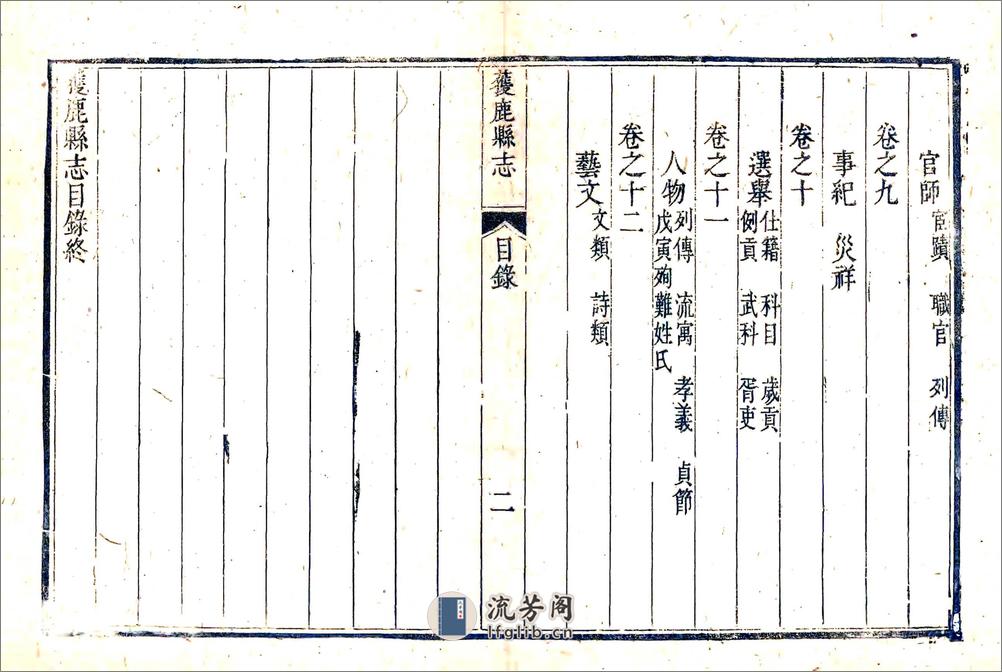 官師 宦蹟 職官 列傳
卷之九
事紀 災祥
卷之十
選舉 仕籍 科目 歲貢
例貢 武科 胥吏
卷之十一
人物 列傳 流寓 孝義 貞節
戊寅殉難姓氏
卷之十二
藝文 文類 詩類
獲鹿縣志 目錄 二
獲鹿縣志目錄終
流芳阁
lfglib.cn